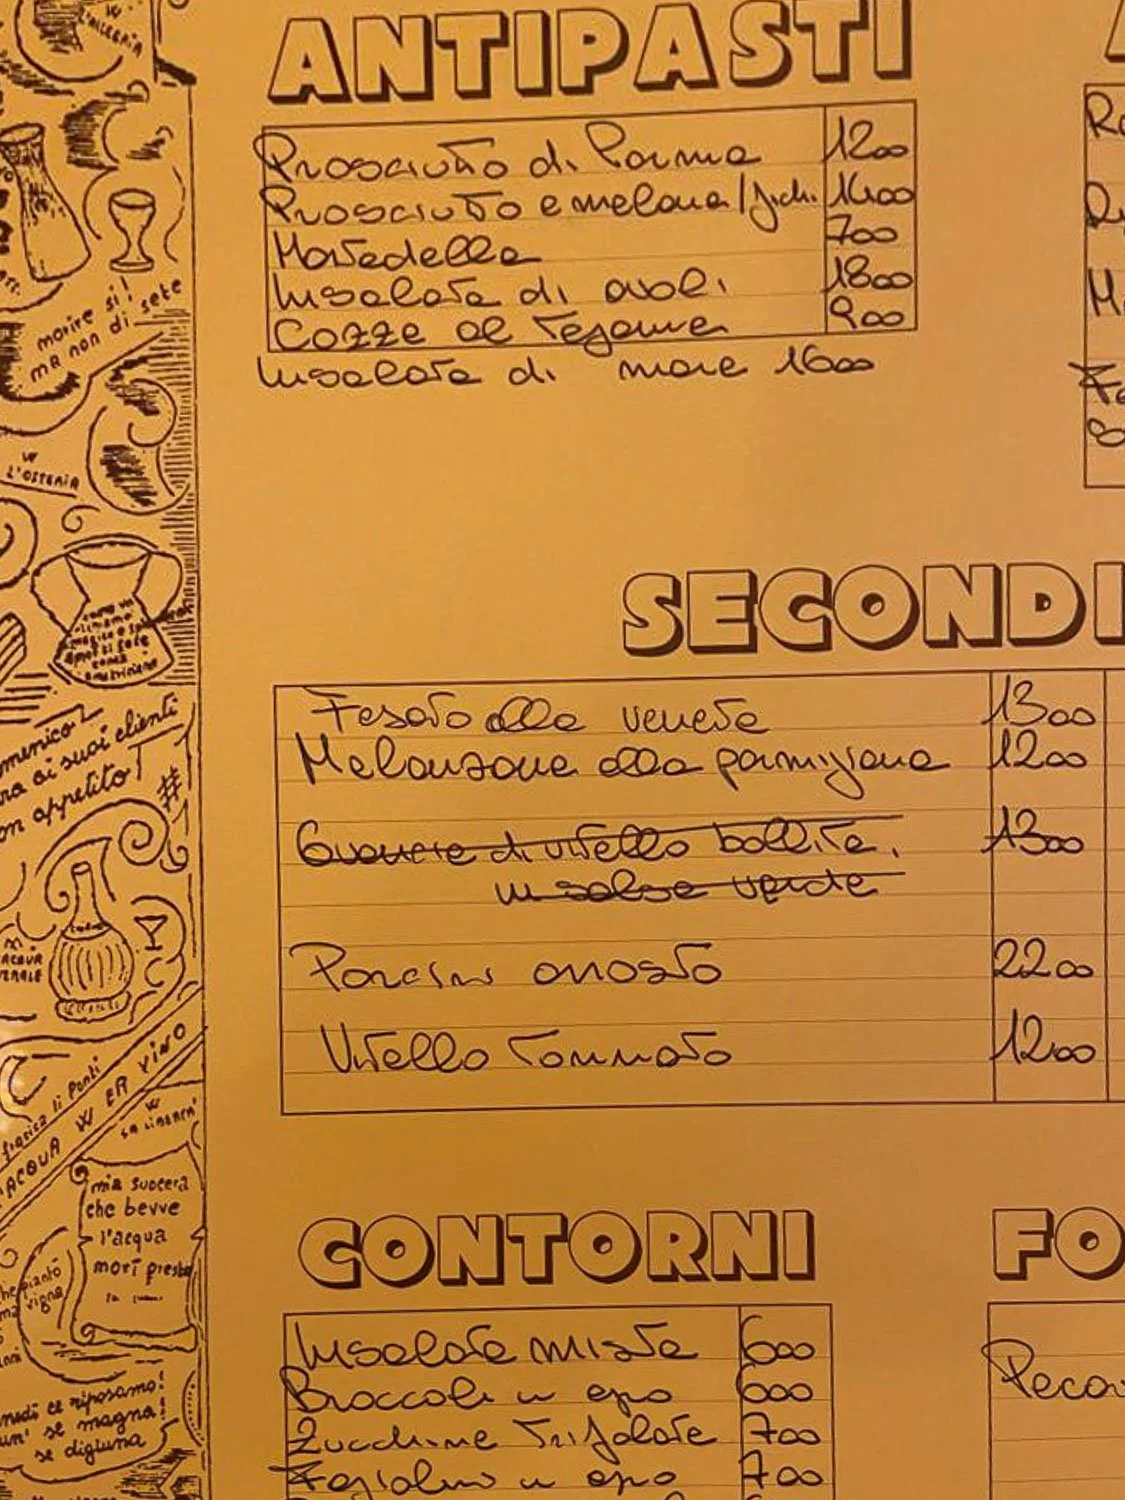 ANTIPASTI
Prosciutto di Parma 1200
Prosciutto e melone/fichi 1400
Mortadella 700
Insalata di ovoli 1800
Cozze al tegame 900
Insalata di mare 1600
SECONDI
Fegato alla veneta 1300
Melanzane alla parmigiana 1200
Guancie di vitello bollite 1300
in salsa verde
Porcini arrosto 2200
Vitello Tonnato 1200
CONTORNI
Insalata mista 600
Broccoli in ago 600
Zucchine Trifolate 700
Fagiolini in ago 700
FO
Peco
W
L'ALLEGRIA
morire sì!
ma non di sete
W
L'OSTERIA
menico
ra ai suoi clienti
on appetito
ACQUA W ER VINO
W
mia suocera
che bevve
l'acqua
morì presto
ce riposamo!
un' se magna!
se digiuna